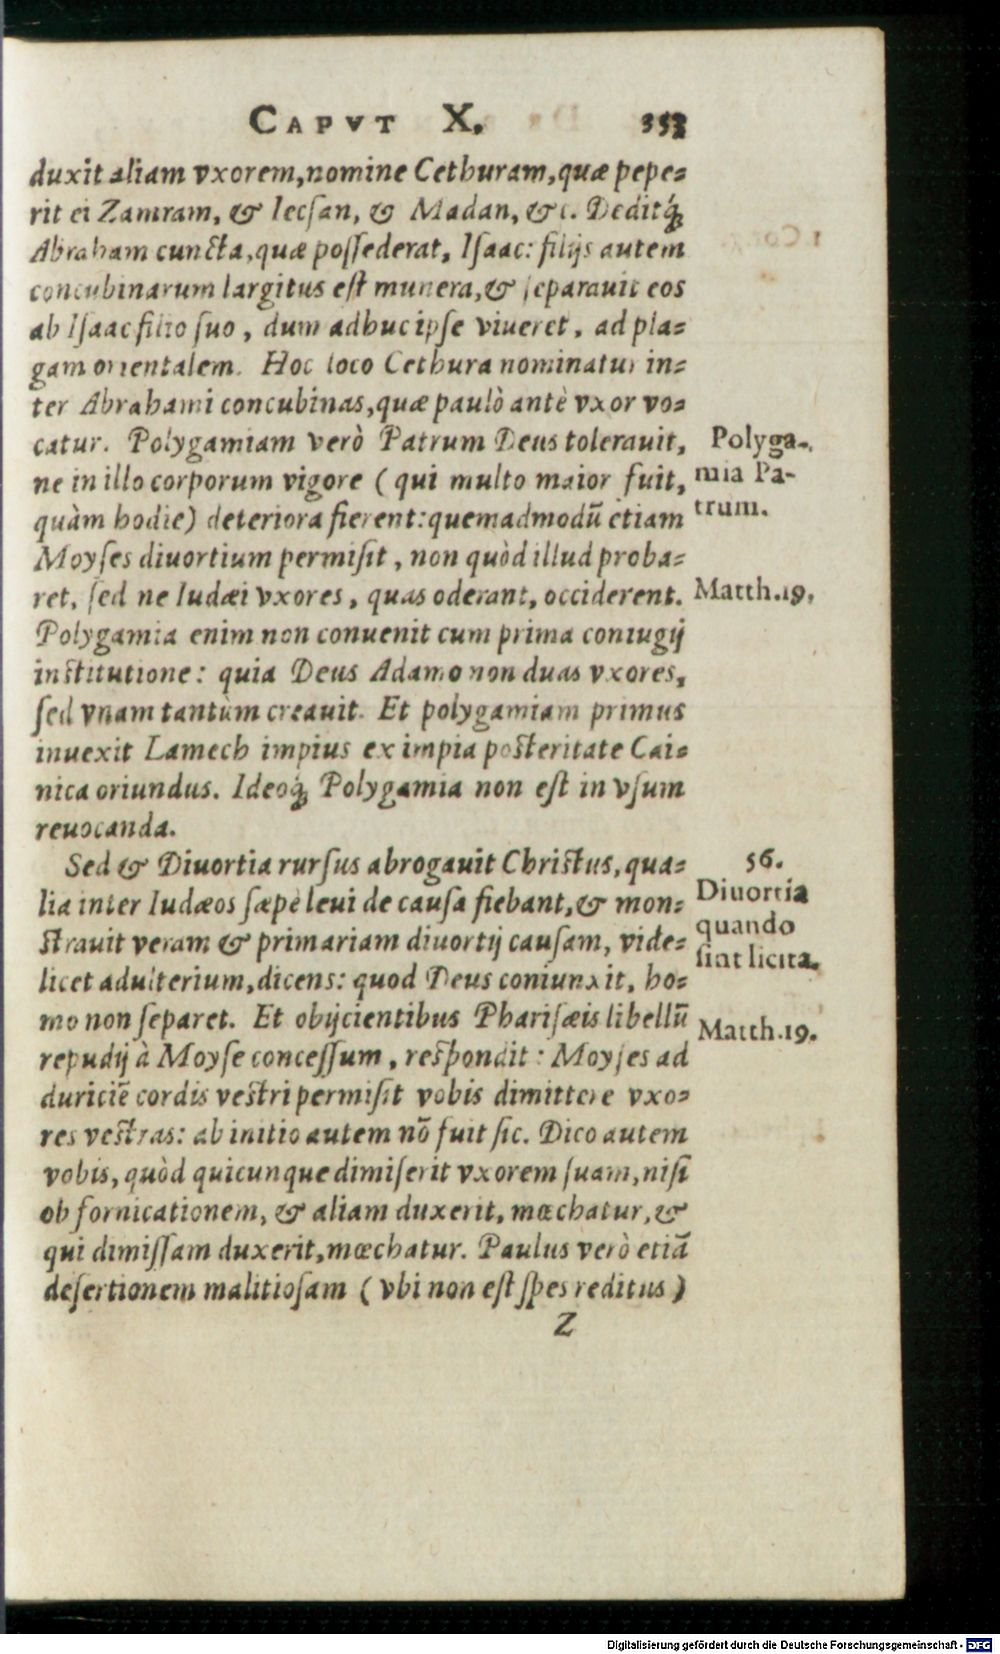 CAPVT X. 353
duxit aliam vxorem, nomine Cethuram, quæ pepe-
rit ei Zamram, & Iecsan, & Madan, &c. Deditq́;
Abraham cuncta, quæ possederat, Isaac: filijs autem
concubinarum largitus est munera, & separauit eos
ab Isaac filio suo, dum adhuc ipse viueret, ad pla-
gam orientalem. Hoc loco Cethura nominatur in-
ter Abrahami concubinas, quæ paulò antè vxor vo-
catur. Polygamiam verò Patrum Deus tolerauit,
Polyga-
ne in illo corporum vigore (qui multo maior fuit,
mia Pa-
quàm hodie) deteriora fierent: quemadmodũ etiam
trum.
Moyses diuortium permisit, non quòd illud proba-
ret, sed ne Iudæi vxores, quas oderant, occiderent.
Matth.19.
Polygamia enim non conuenit cum prima coniugij
institutione: quia Deus Adamo non duas vxores,
sed vnam tantùm creauit. Et polygamiam primus
inuexit Lamech impius ex impia posteritate Cai-
nica oriundus. Ideoq́; Polygamia non est in vsum
reuocanda.
Sed & Diuortia rursus abrogauit Christus, qua-
56.
lia inter Iudæos sæpè leui de causa fiebant, & mon-
Diuortia
strauit veram & primariam diuortij causam, vide-
quando
licet adulterium, dicens: quod Deus coniunxit, ho-
sint licita.
mo non separet. Et obijcientibus Pharisæis libellũ
Matth.19.
repudij à Moyse concessum, respondit: Moyses ad
duriciẽ cordis vestri permisit vobis dimittere vxo-
res vestras: ab initio autem nõ fuit sic. Dico autem
vobis, quòd quicunque dimiserit vxorem suam, nisi
ob fornicationem, & aliam duxerit, mœchatur, &
qui dimissam duxerit, mœchatur. Paulus verò etiã
desertionem malitiosam (vbi non est spes reditus)
Z
Digitalisierung gefördert durch die Deutsche Forschungsgemeinschaft - DFG